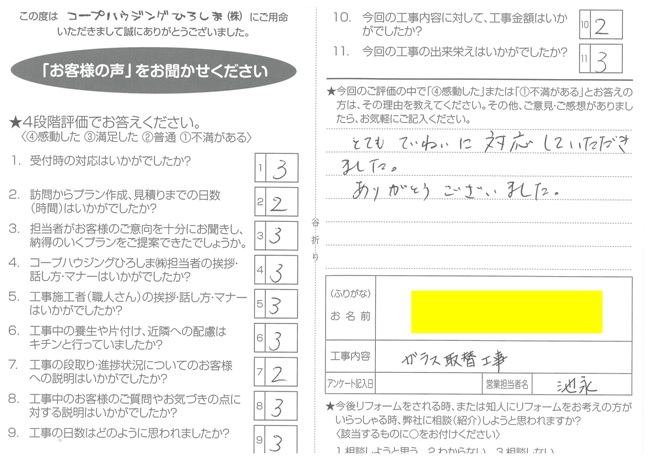 この度は コープハウジングひろしま(株) にご用命
いただきまして誠にありがとうございました。
「お客様の声」をお聞かせください
★4段階評価でお答えください。
〈④感動した ③満足した ②普通 ①不満がある〉
1. 受付時の対応はいかがでしたか?
1 3
2. 訪問からプラン作成、見積りまでの日数
(時間)はいかがでしたか?
2 2
3. 担当者がお客様のご意向を十分にお聞きし、
納得のいくプランをご提案できたでしょうか。
3 3
4. コープハウジングひろしま㈱担当者の挨拶・
話し方・マナーはいかがでしたか?
4 3
5. 工事施工者(職人さん)の挨拶・話し方・マナー
はいかがでしたか?
5 3
6. 工事中の養生や片付け、近隣への配慮は
キチンと行っていましたか?
6 3
7. 工事の段取り・進捗状況についてのお客様
への説明はいかがでしたか?
7 2
8. 工事中のお客様のご質問やお気づきの点に
対する説明はいかがでしたか?
8 3
9. 工事の日数はどのように思われましたか?
9 3
谷折り
10. 今回の工事内容に対して、工事金額はいか
がでしたか?
10 2
11. 今回の工事の出来栄えはいかがでしたか?
11 3
★今回のご評価の中で「④感動した」または「①不満がある」とお答え
の方は、その理由を教えてください。その他、ご意見・ご感想がありまし
たら、お気軽にご記入ください。
とても ていねいに 対応していただき
ました。
ありがとうございました。
(ふりがな)
お名前
工事内容 ガラス取替工事
アンケート記入日 営業担当者名 池永
★今後リフォームをされる時、または知人にリフォームをお考えの方が
いらっしゃる時、弊社に相談(紹介)しようと思われますか?
〈該当するものに○をお付けください〉
1.相談しようと思う 2.わからない 3.相談しない